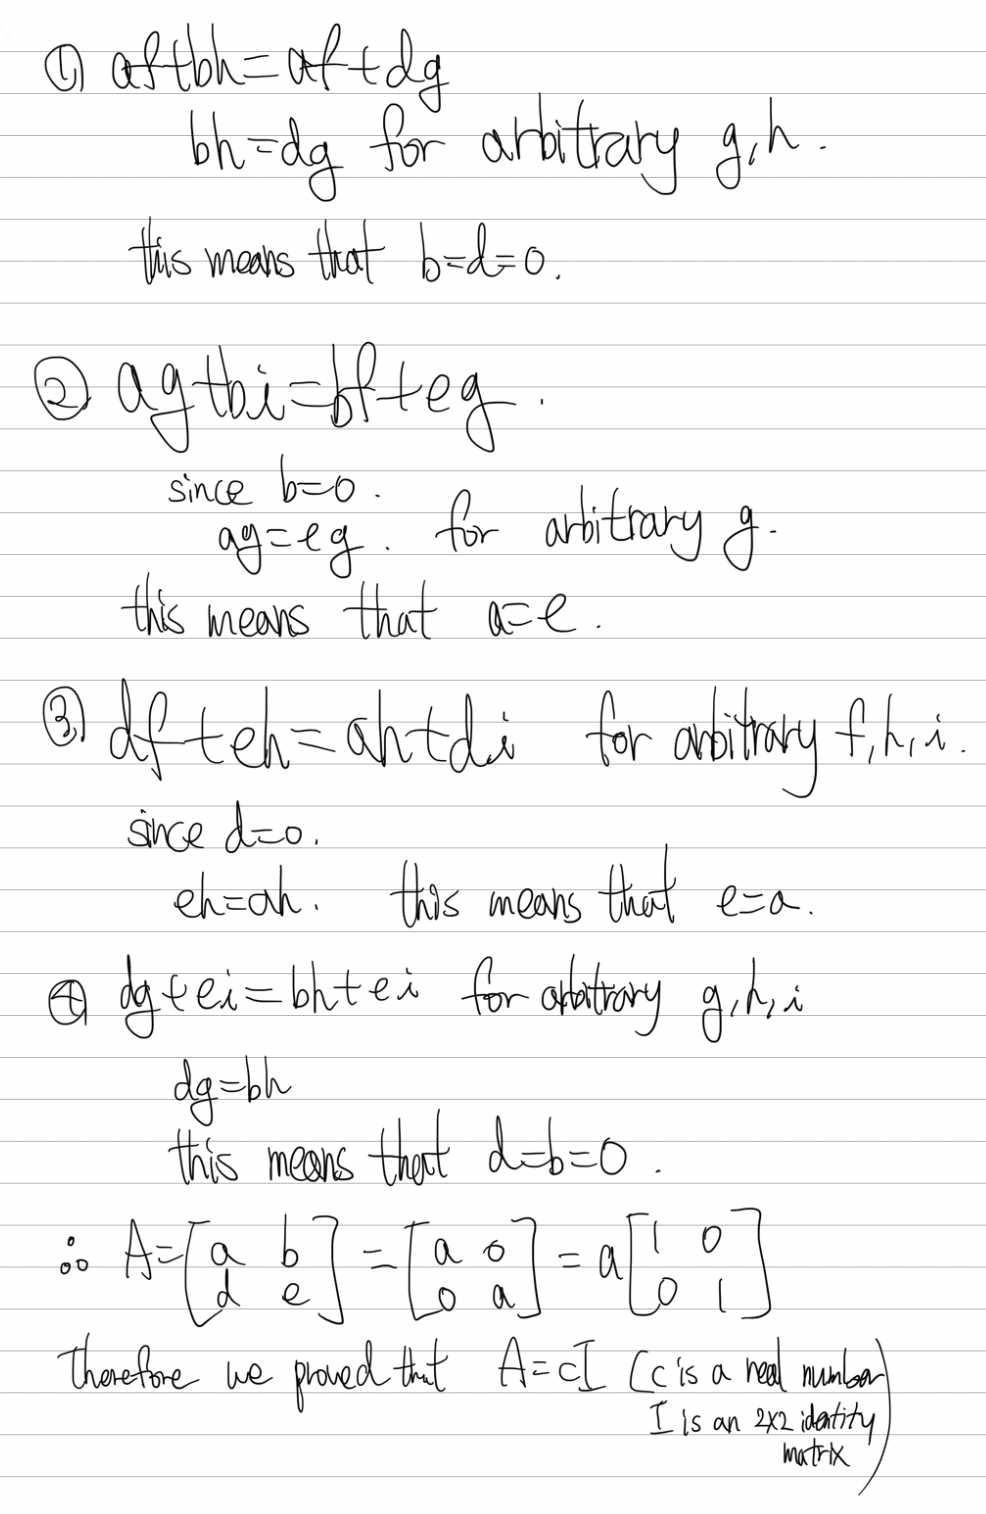 ① af+bh=af+dg
bh=dg for arbitrary g,h.
this means that b=d=0.
② ag+bi=bf+eg.
since b=0.
ag=eg. for arbitrary g.
this means that a=e.
③ df+eh=ah+di for arbitrary f,h,i.
since d=0.
eh=ah. this means that e=a.
④ dg+ei=bh+ei for arbitrary g,h,i
dg=bh
this means that d=b=0.
∴ A=[a b; d e]=[a 0; 0 a]=a[1 0; 0 1]
Therefore we proved that A=cI (c is a real number
I is an 2x2 identity
matrix)